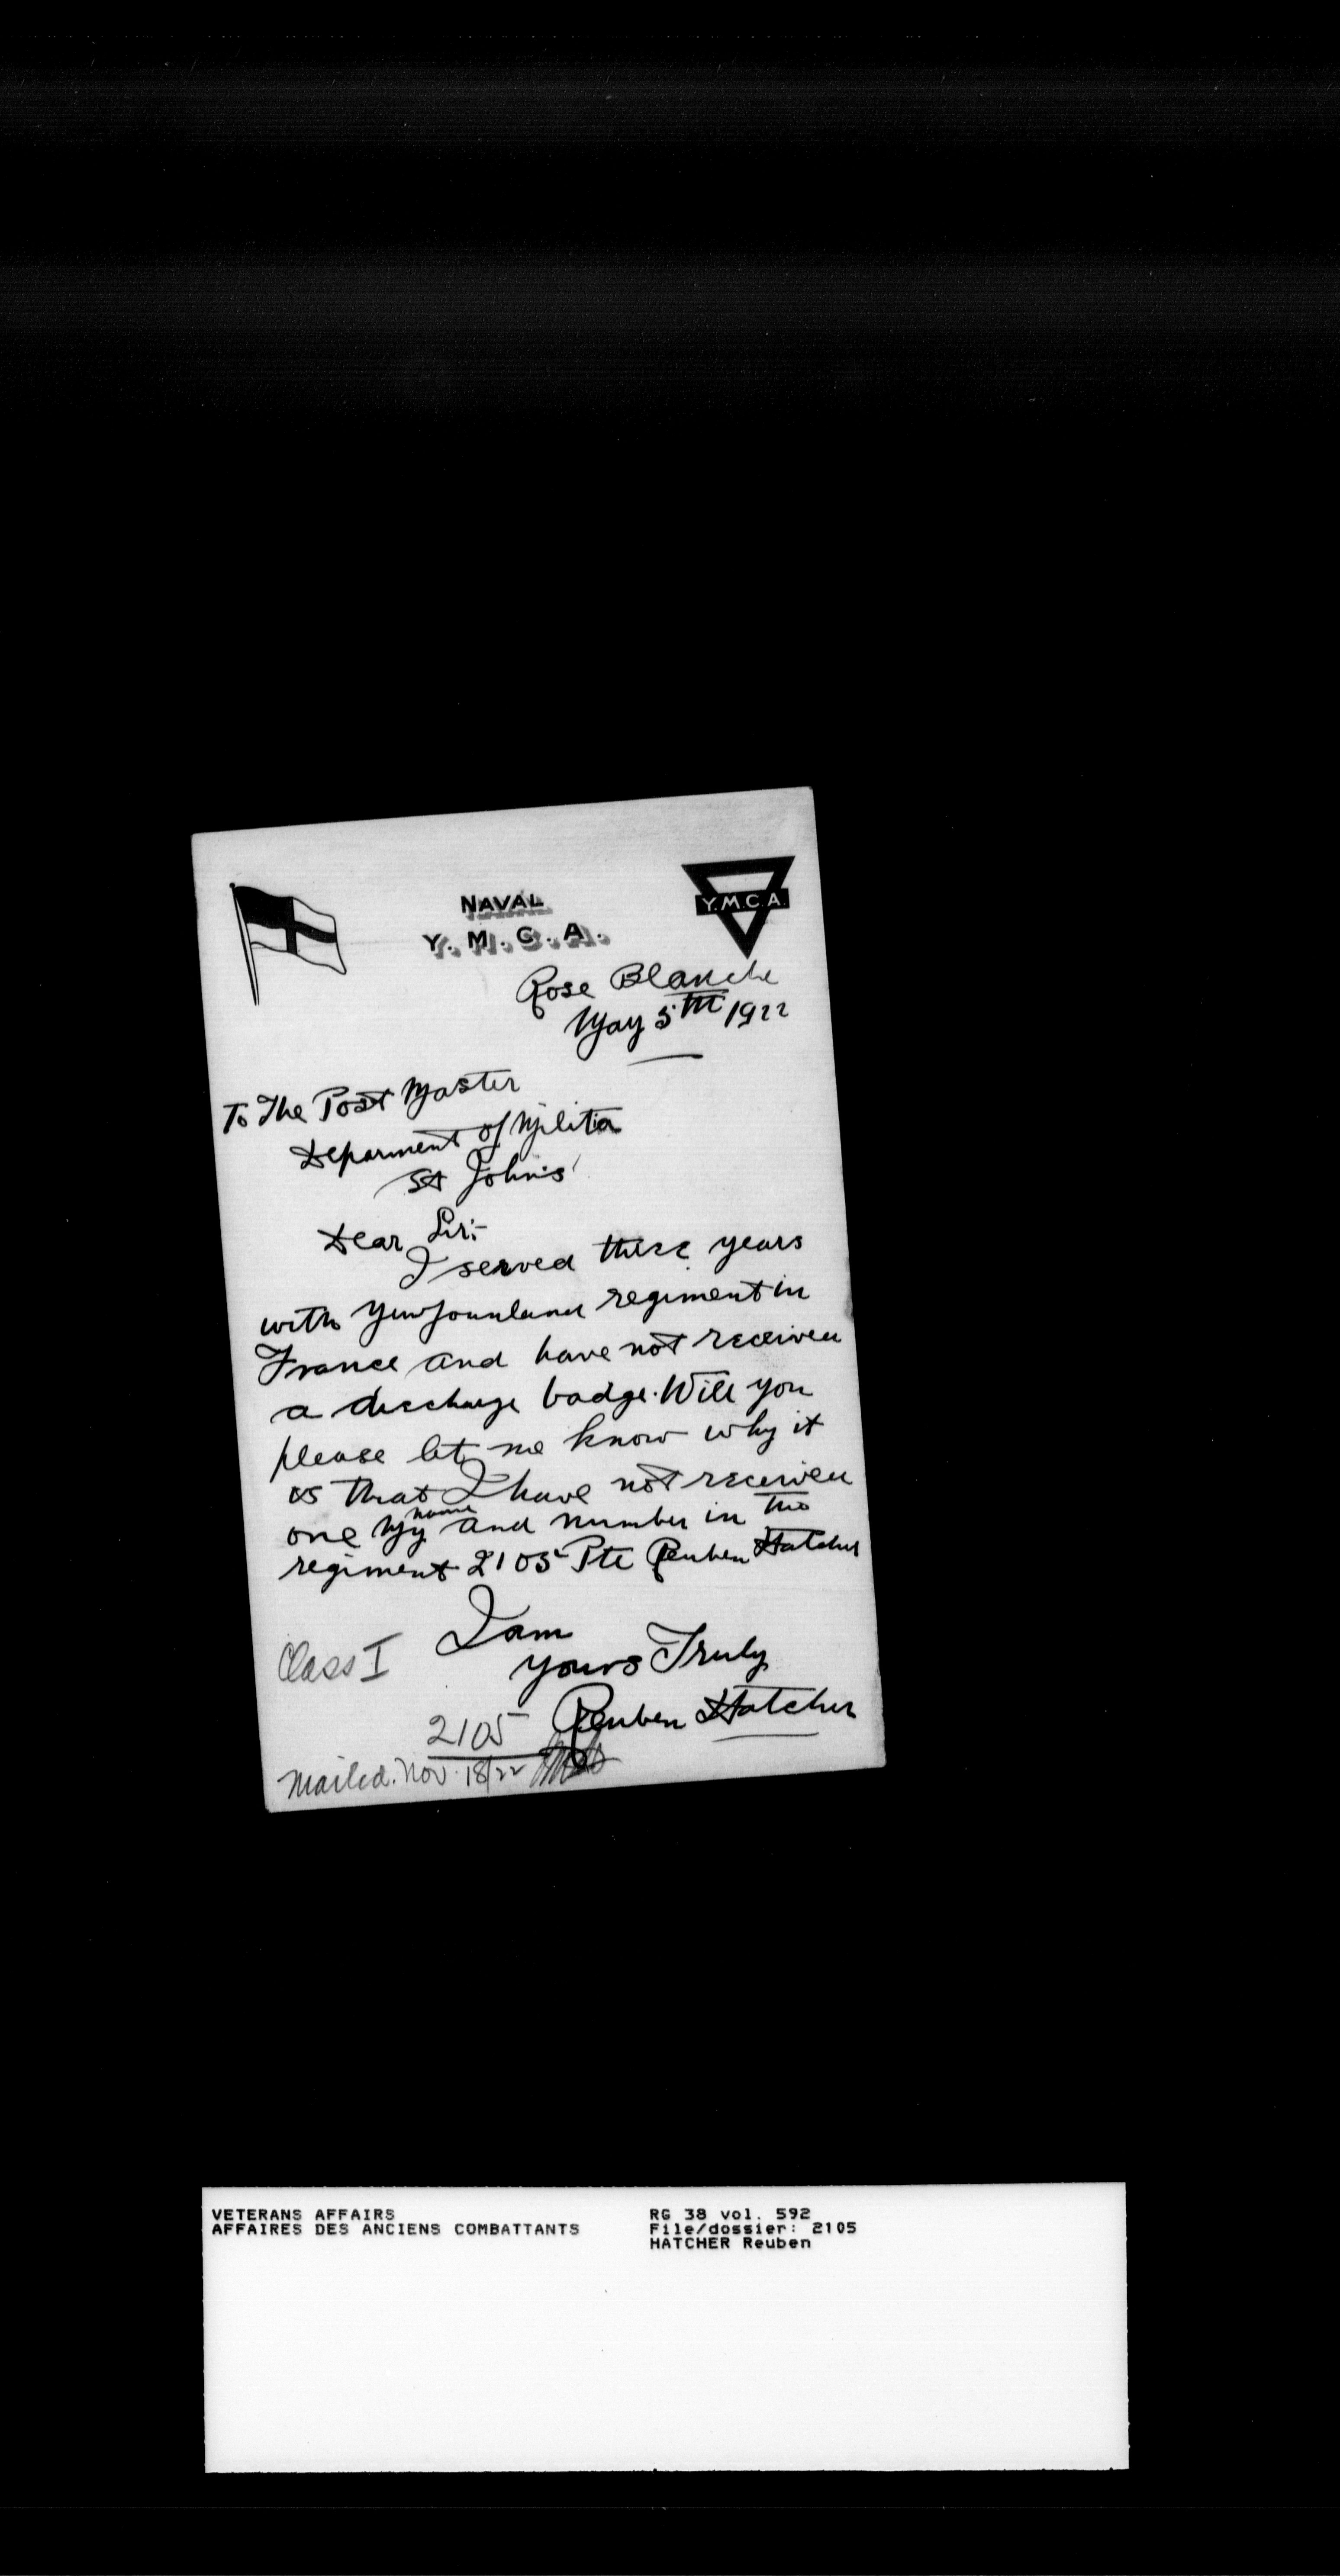 NAVAL
Y.M.C.A.
Y.M.C.A.
Rose Blanche
May 5th 1922
To The Post Master
Deparment of Milita
St John's
Dear Sir:-
I served three years
with Newfounland regiment in
France and have not received
a discharge badge. Will you
please let me know why it
is that I have not received
one My name and number in the
regiment 2105 Pte Reuben Hatcher
I am
Yours Truly
Reuben Hatcher
Class I
2105
Mailed. Nov. 18/22
VETERANS AFFAIRS
AFFAIRES DES ANCIENS COMBATTANTS
RG 38 vol. 592
File/dossier: 2105
HATCHER Reuben